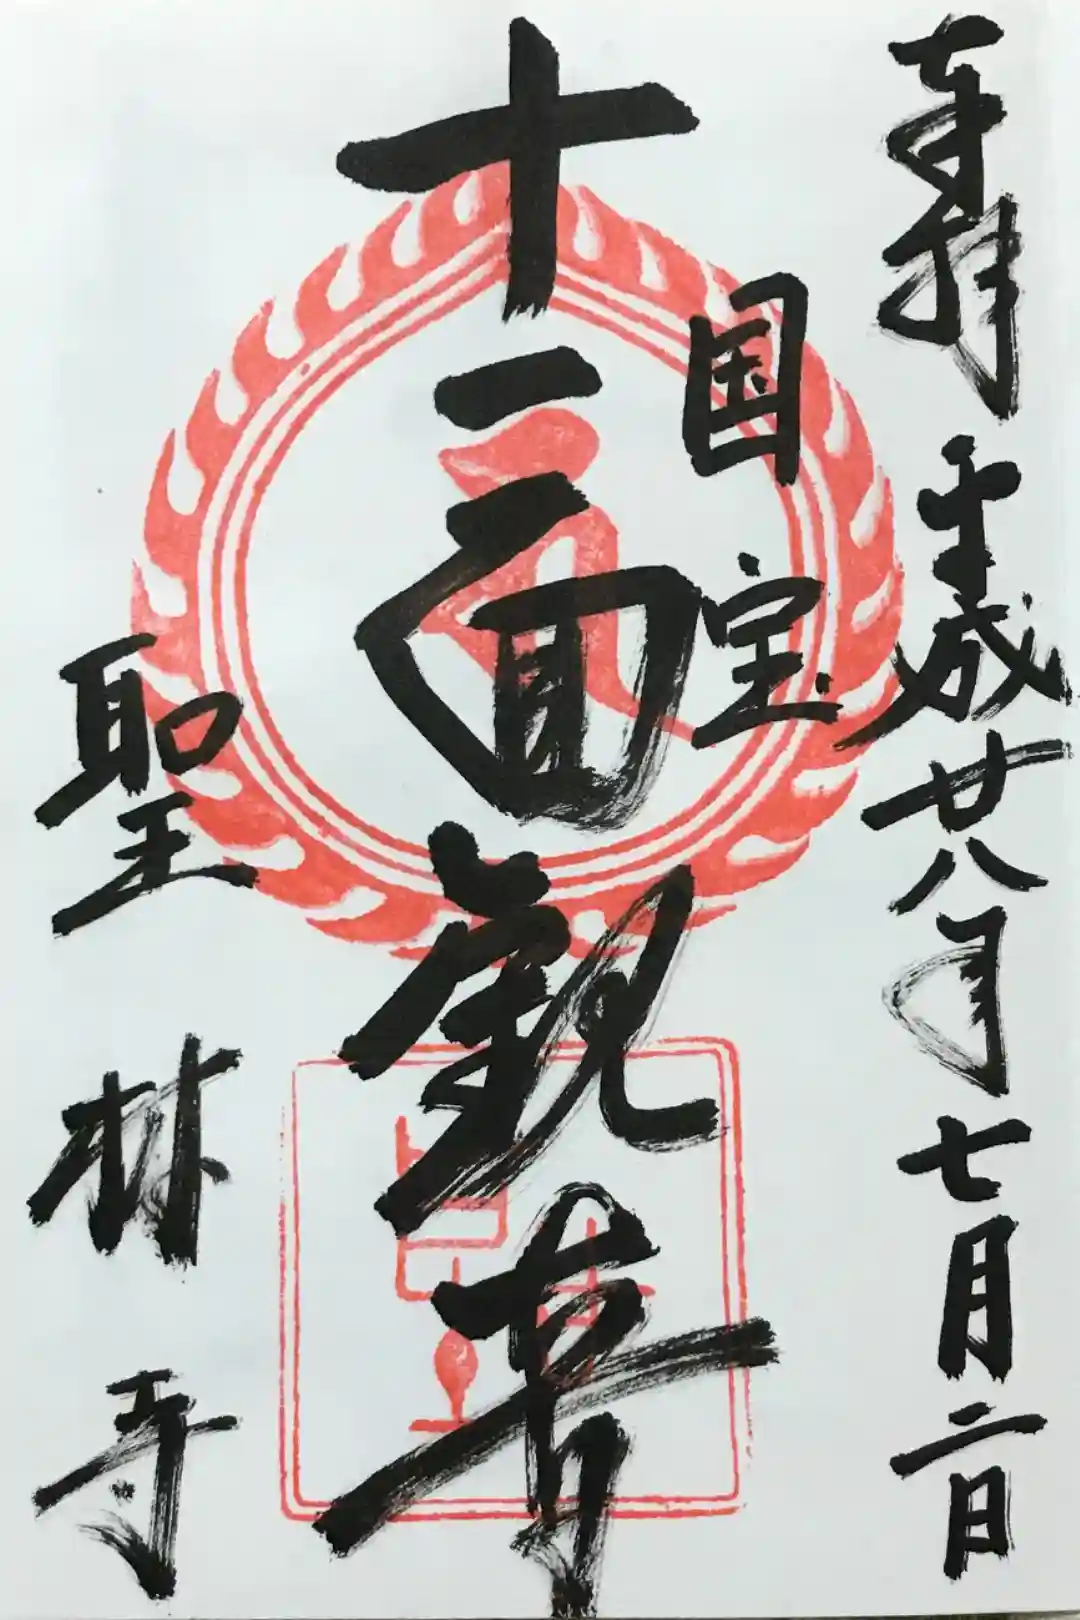 奉拝 平成廿八年七月二日
国宝
十一面観音
聖林寺